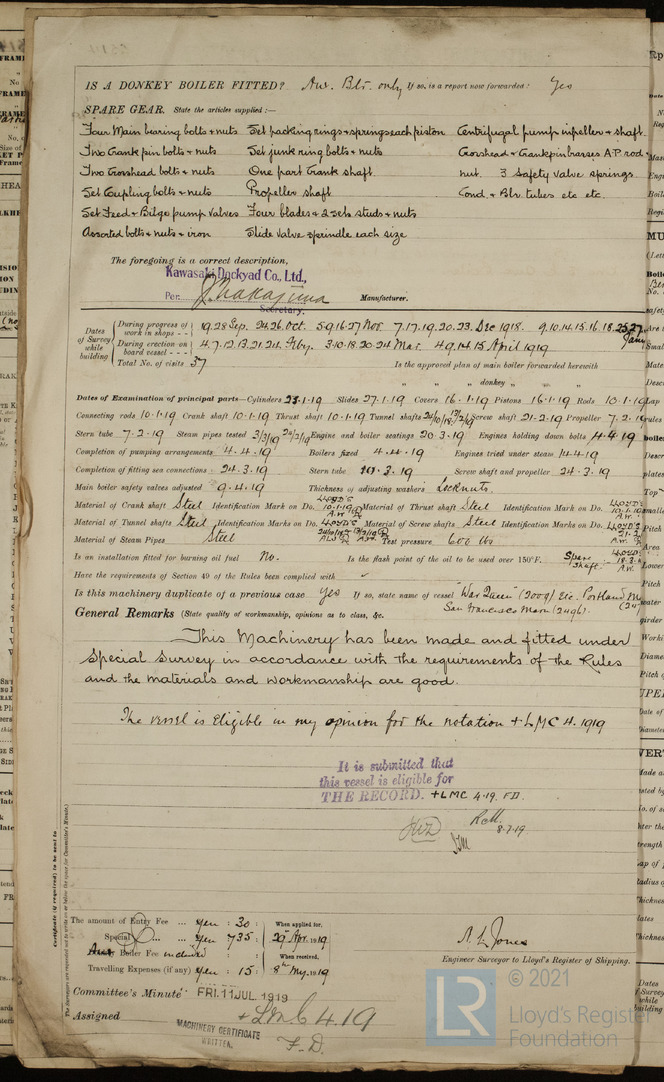 IS A DONKEY BOILER FITTED? Aux. Blr. only If so, is a report now forwarded? Yes
SPARE GEAR. State the articles supplied:—
Four Main bearing bolts & nuts Set packing rings & springs each piston Centrifugal pump inpellers & shaft.
Two Crank pin bolts & nuts Set junk ring bolts & nuts Crosshead & Crankpin brasses A.P. rod &
Two Crosshead bolts & nuts One part Crank shaft nut. 3 Safety valve springs
Set Coupling bolts & nuts Propeller shaft Cond. & Blr tubes etc etc.
Set Feed & Bilge pump valves Four blades & 2 sets studs & nuts
Assorted bolts & nuts & iron Slide valve spindle each size
The foregoing is a correct description,
Kawasaki Dockyad Co., Ltd.,
Per. Manufacturer.
Secretary.
Dates of Survey while building
During progress of work in shops - - 19.28 Sep. 24.26. Oct. 5.9.16.27 Nov. 7.17.19.20.23. Dec 1918. 9.10.14.15.16.18.25.27 Jany
During erection on board vessel - - - 4.7.12.13.21.24. Feby. 3.10.18.20.24 Mar. 4.9.14.15 April 1919
Total No. of visits 37 Is the approved plan of main boiler forwarded herewith
" " " donkey " " "
Dates of Examination of principal parts—Cylinders 23.1.19 Slides 27.1.19 Covers 16.1.19 Pistons 16.1.19 Rods 10.1.19
Connecting rods 10.1.19 Crank shaft 10.1.19 Thrust shaft 10.1.19 Tunnel shafts Screw shaft 21-2-19 Propeller 7.2.19
Stern tube 7.2.19 Steam pipes tested 3/3/19 24/2/19 Engine and boiler seatings 20.3.19 Engines holding down bolts 4.4.19
Completion of pumping arrangements 4.4.19 Boilers fixed 4.4.19 Engines tried under steam 14.4.19
Completion of fitting sea connections 24.3.19 Stern tube 10.3.19 Screw shaft and propeller 24.3.19
Main boiler safety valves adjusted 9.4.19 Thickness of adjusting washers Locknuts.
Material of Crank shaft Steel Identification Mark on Do. LLOYD'S 10.1.19 A.W. Material of Thrust shaft Steel Identification Mark on Do. LLOYD'S 10.1.19 A.W.
Material of Tunnel shafts Steel Identification Marks on Do. LLOYD'S Material of Screw shafts Steel Identification Marks on Do. LLOYD'S 21.2
Material of Steam Pipes Steel Test pressure 600 lbs
Is an installation fitted for burning oil fuel No. Is the flash point of the oil to be used over 150°F. Spare Shaft:- LLOYD'S A.W.
Have the requirements of Section 49 of the Rules been complied with
Is this machinery duplicate of a previous case Yes If so, state name of vessel "War Queen" (2009) Etc. Portland
San Francisco Maru (2496).
General Remarks (State quality of workmanship, opinions as to class, &c.
This Machinery has been made and fitted under
Special Survey in accordance with the requirements of the Rules
and the materials and workmanship are good.
The vessel is eligible in my opinion for the notation + LMC 4.1919
It is submitted that
this vessel is eligible for
THE RECORD. + LMC 4.19. F.D.
8.7.19
Certificate (if required) to be sent to
The amount of Entry Fee ... Yen : 30 : When applied for,
Special ... ... Yen 735 : 29 Apr. 1919
Aux Boiler Fee included : : When received,
Travelling Expenses (if any) Yen : 15 : 8th My. 1919
A. L. Jones
Engineer Surveyor to Lloyd's Register of Shipping.
Committee's Minute FRI. 11 JUL 1919
Assigned + LMC 4.19
F.D.
MACHINERY CERTIFICATE
WRITTEN.
© 2021
LR
Lloyd's Register
Foundation